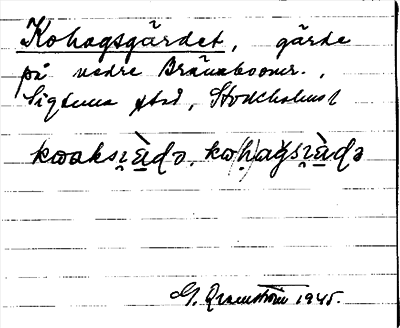 Kohagsgärdet, gärde
på nedre Brännbooms.,
Sigtuna stad, Stockholms l
kωaksı̣ὰ̱də, kω(h)agsı̣ὰ̱də
G. Ranström 1945.